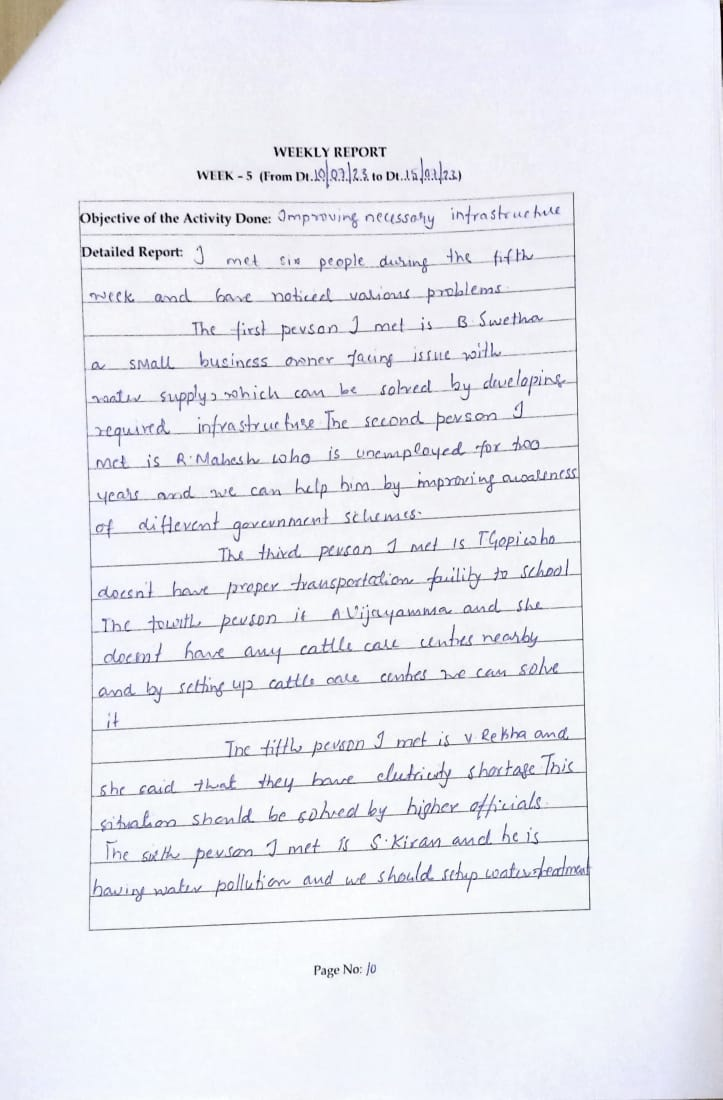 WEEKLY REPORT
WEEK - 5 (From Dt.10/07/23 to Dt.15/07/23)
Objective of the Activity Done: Improving necessary infrastructure
Detailed Report: I met six people during the fifth
week and have noticed various problems.
The first person I met is B.Swetha
a small business owner facing issue with
water supply, which can be solved by developing
required infrastructure The second person I
met is R.Mahesh who is unemployed for two
years and we can help him by improving awareness
of different government schemes.
The third person I met is T Gopi who
doesn't have proper transportation faility to school
The fowrth person is A.Vijayamma and she
doesnt have any cattle care centres nearby
and by setting up cattle care centres we can solve
it
The fifth person I met is V Rekha and
she said that they have eletricity shortage This
situation should be solved by higher officials.
The sixth person I met is S.Kiran and he is
having water pollution and we should setup water treatment
Page No: 10